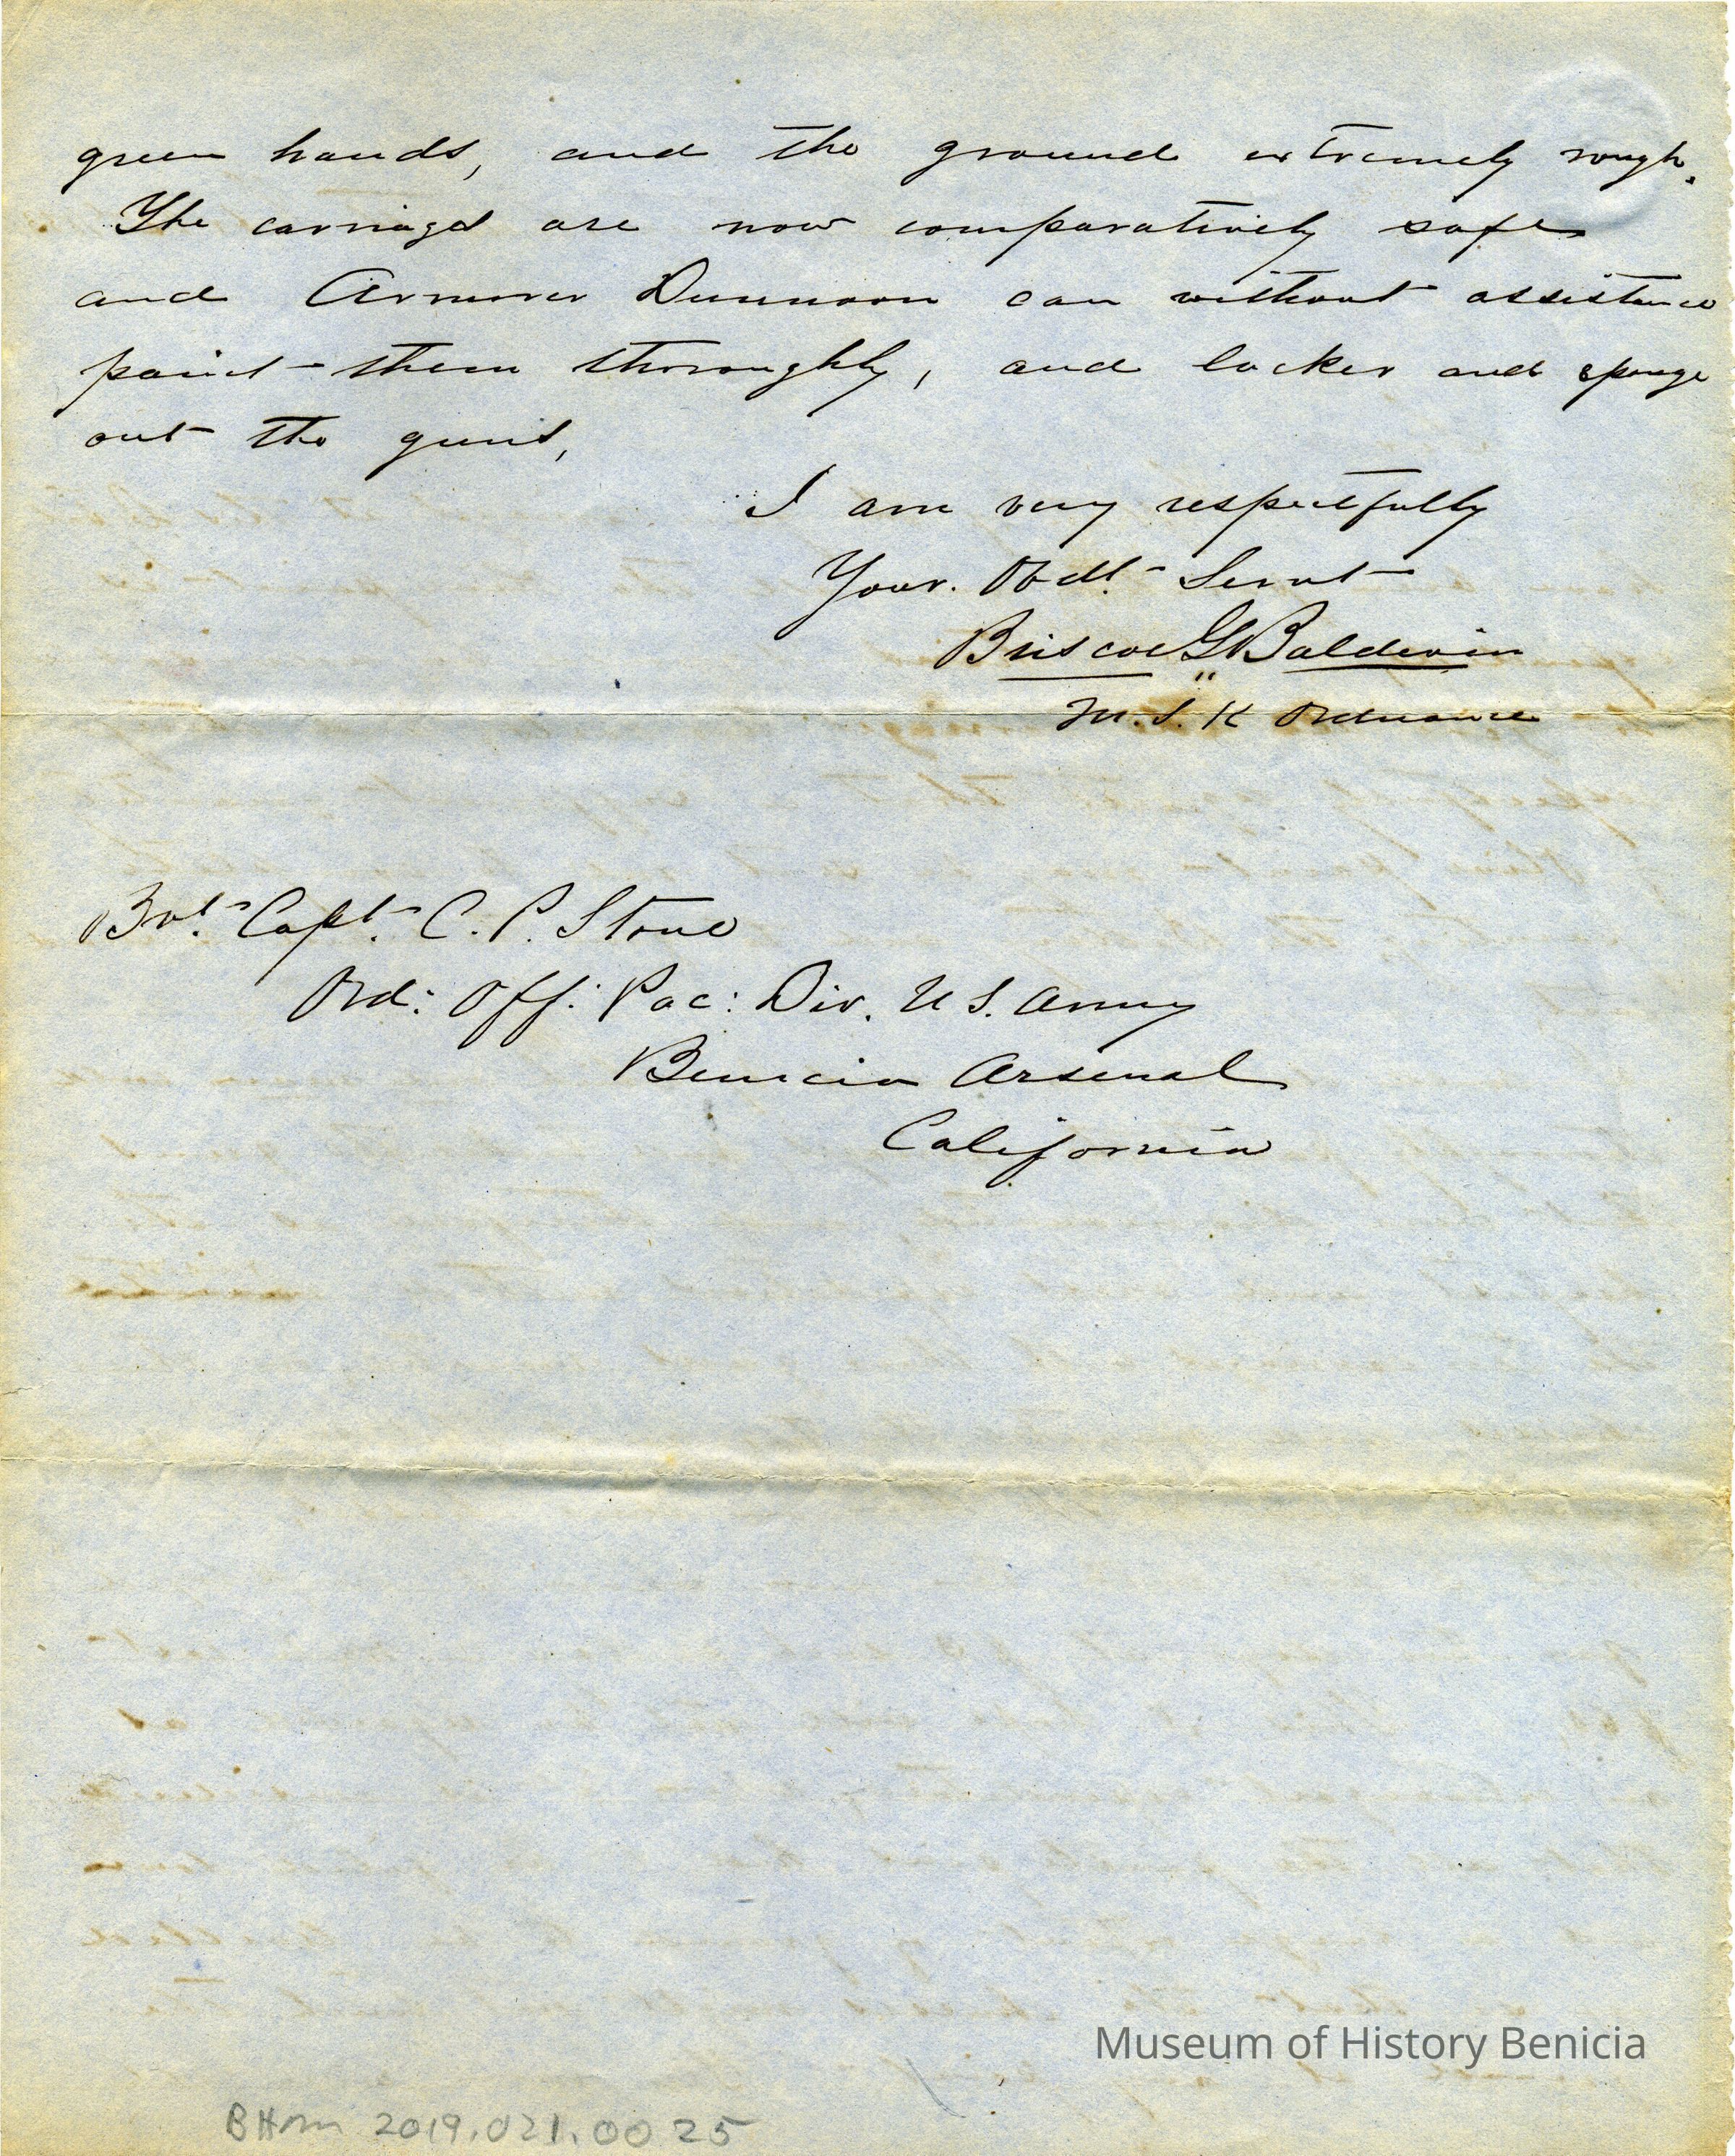 green hands, and the ground extremely rough.
The carriages are now comparatively safe
and Armorer Dunnoon can without assistance
paint them thoroughly, and lacker and sponge
out the guns,
I am very respectfully
Your. Obdt. Servt
Briscoe G Baldwin
M. S. K Ordnance
Bvt. Capt. C. P. Stone
Ord: Off: Pac: Div. U S. Army
Benicia Arsenal
California
Museum of History Benicia
BHM 2019.021.0025